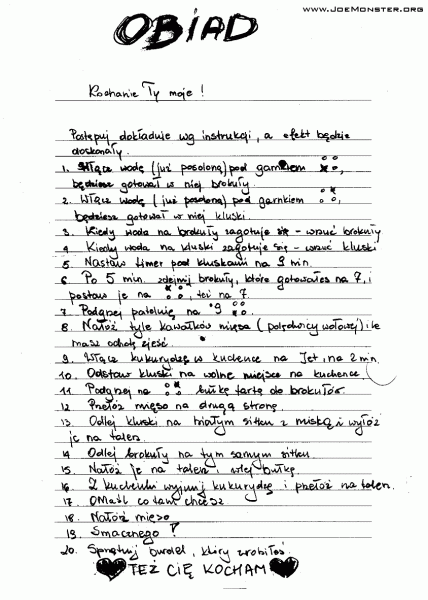 www.JoeMonster.org
OBIAD
Kochanie Ty moje!
Postępuj dokładnie wg instrukcji, a efekt będzie
doskonały.
1. Włącz wodę (już posoloną) pod garnkiem ,
będziesz gotował w niej brokuły.
2. Włącz wodę (już posoloną) pod garnkiem ,
będziesz gotował w niej kluski.
3. Kiedy woda na brokuły zagotuje się - wrzuć brokuły
4. Kiedy woda na kluski zagotuje się - wrzuć kluski
5. Nastaw timer pod kluskami na 9 min.
6. Po 5 min. zdejmij brokuły, które gotowałeś na 7, i
postaw je na , też na 7.
7. Podgrzej patelnię na 9
8. Nałóż tyle kawałków mięsa (polędwicy wołowej) ile
masz ochotę zjeść.
9. Włącz kukurydzę w kuchence na Jet, na 2 min.
10. Odstaw kluski na wolne miejsce na kuchence.
11. Podgrzej na bułkę tartą do brokułów.
12. Przełóż mięso na drugą stronę.
13. Odlej kluski na białym sitku z miską i wyłóż
je na talerz.
14. Odlej brokuły na tym samym sitku.
15. Nałóż je na talerz wlej bułkę.
16. Z kuchenki wyjmij kukurydzę i przełóż na talerz.
17. Omaść co tam chcesz
18. Nałóż mięso
19. Smacznego!
20. Sprzątnij burdel, który zrobiłeś
TEŻ CIĘ KOCHAM